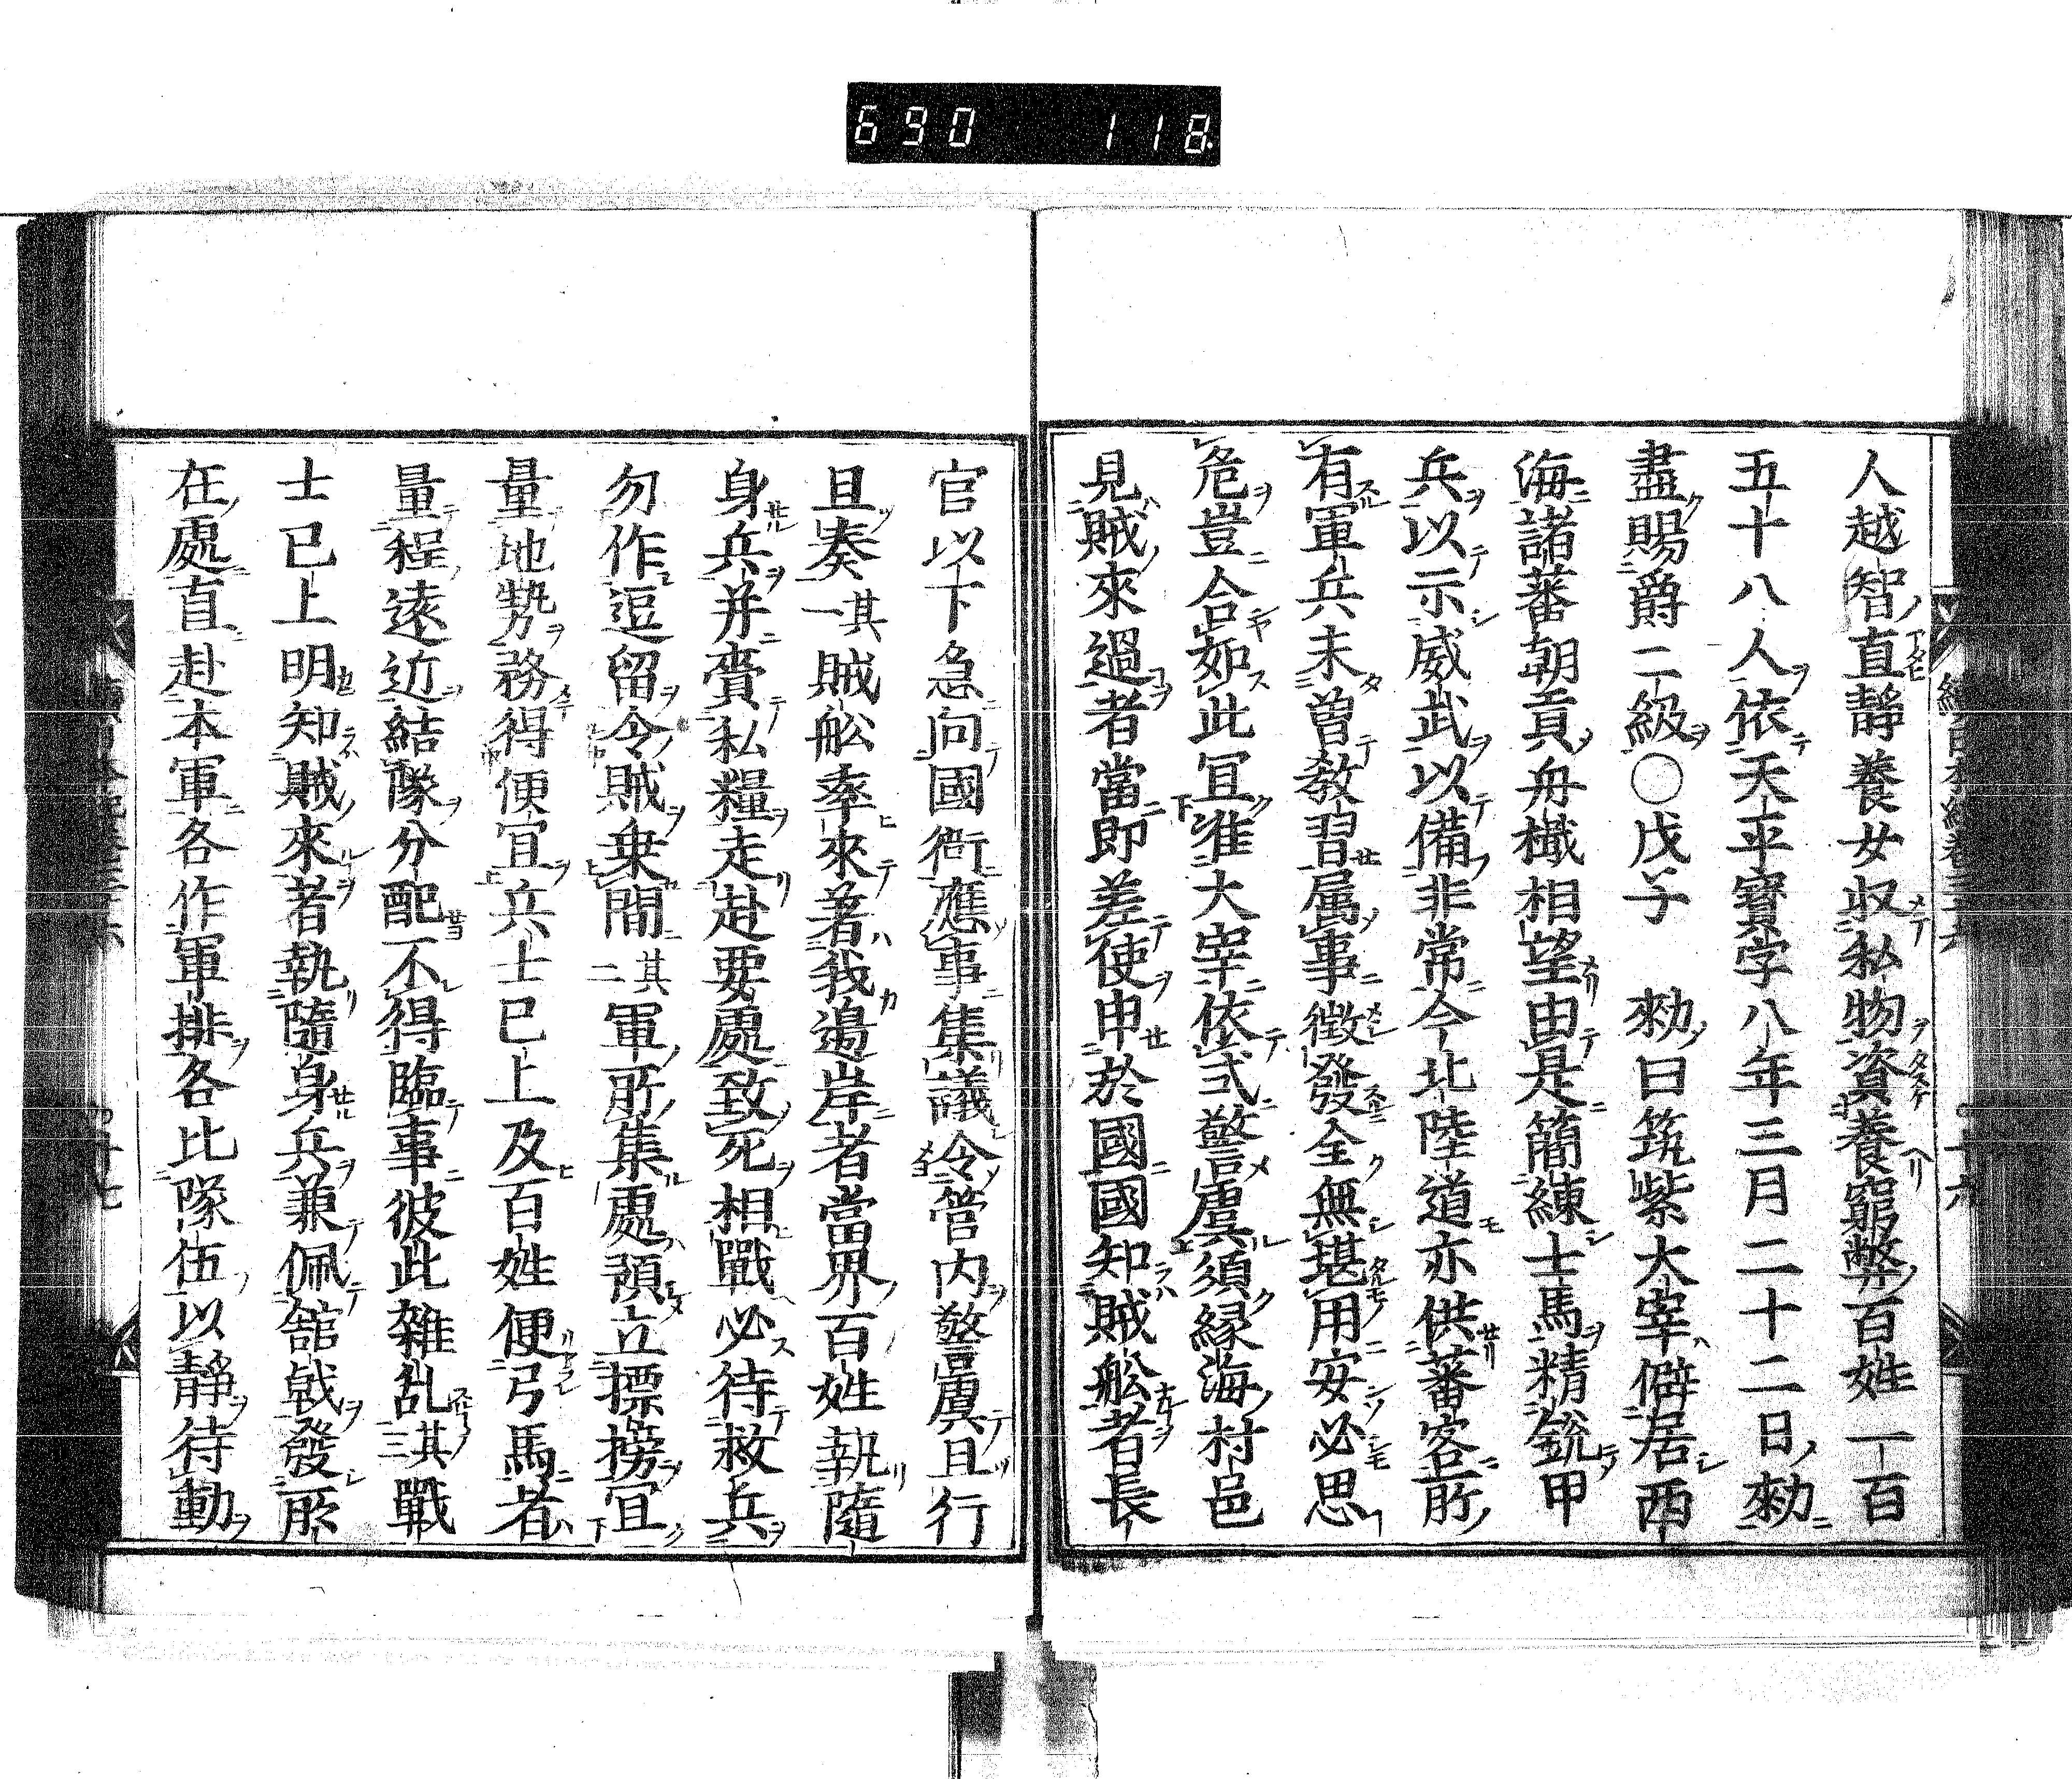 690 118
人越智直靜養女収私物資養窮弊百姓一百
五十八人依天平寳字八年三月二十二日勑
盡賜爵二級〇戊子 勑曰筑紫大宰僻居西
海諸蕃朝貢舟檝相望由是簡練士馬精銳甲
兵以示威武以備非常今北陸道亦供蕃客所
有軍兵未曽教習属事徴發全無堪用安必思
危豈合如此冝准大宰依式警虞須縁海村邑
見賊來過者當即差使申於國國知賊舩者長
官以下急向國衙應事集議令管内警虞且行
且奏其一賊舩率來著我邉岸者當界百姓執隨
身兵并賫私糧走赴要處致死相戰必待救兵
勿作逗留令賊乗間其二軍所集處預立標榜冝
量地勢務得便冝兵士已上及百姓便弓馬者
量程遠近結隊分配不得臨事彼此雜乱其三戰
士已上明知賊來者執隨身兵兼佩餱戟發所
在處直赴本軍各作軍排各比隊伍以靜待動